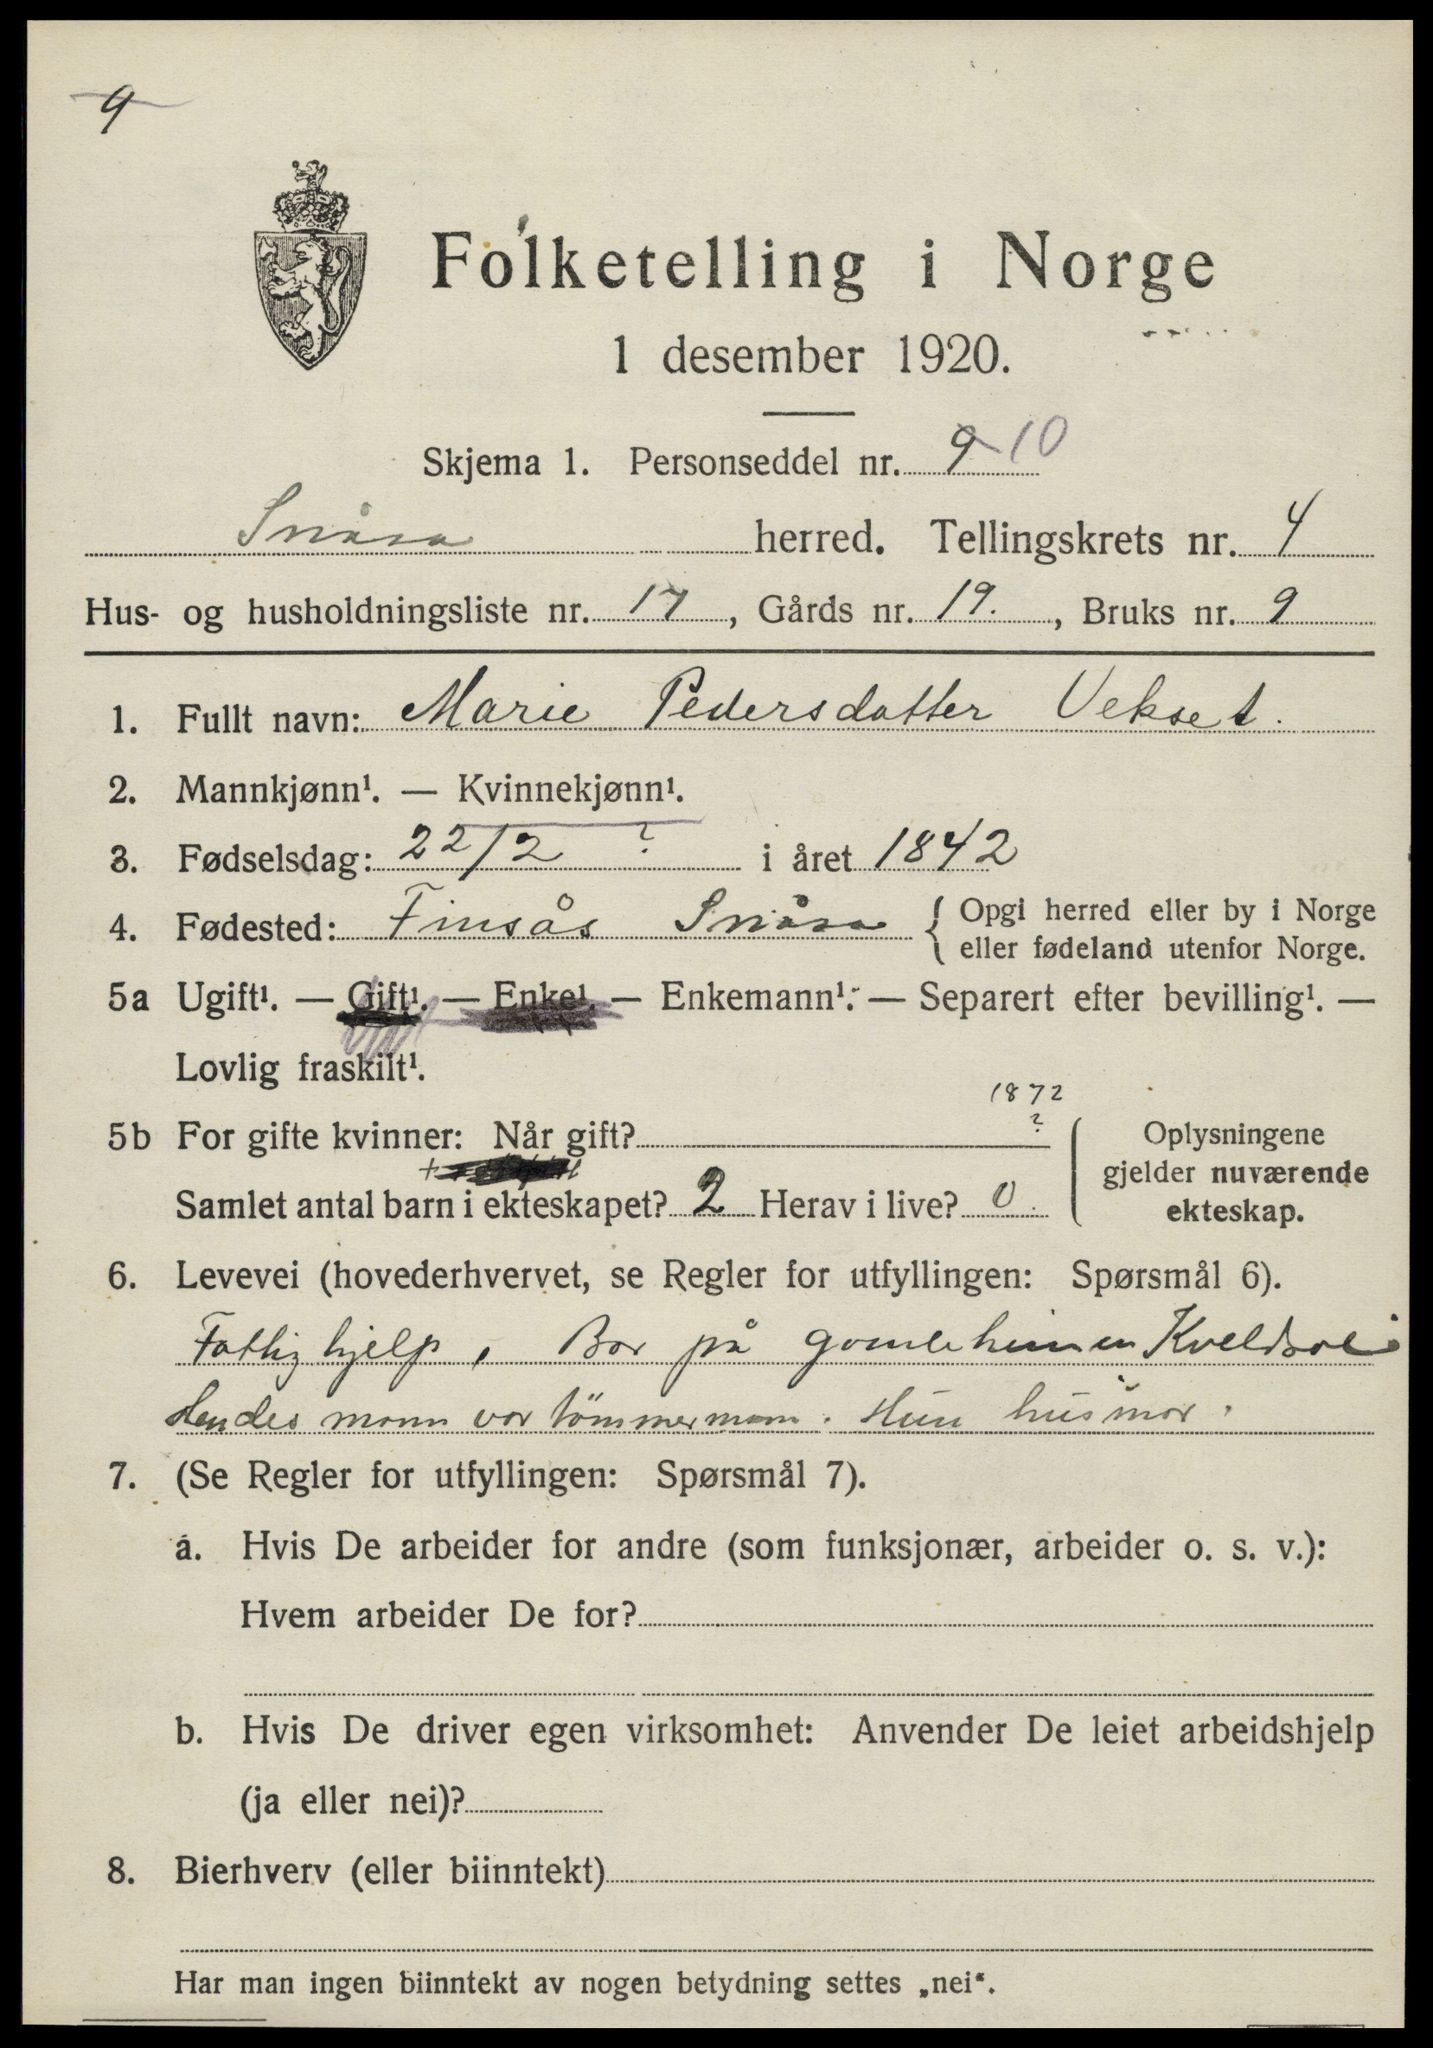 9
Folketelling i Norge
1 desember 1920.
Skjema 1. Personseddel nr. 9 10
Snåsa herred. Tellingskrets nr. 4
Hus- og husholdningsliste nr. 17, Gårds nr. 19., Bruks nr. 9
1. Fullt navn: Marie Pedersdatter Vekset.
2. Mannkjønn¹. — Kvinnekjønn¹.
3. Fødselsdag: 22/2 ? i året 1842
4. Fødested: Finsås Snåsa { Opgi herred eller by i Norge
eller fødeland utenfor Norge.
5a Ugift¹. — Gift¹. — Enke¹. — Enkemann¹. — Separert efter bevilling¹. —
Lovlig fraskilt¹.
1872
5b For gifte kvinner: Når gift? ?
Samlet antal barn i ekteskapet? 2 Herav i live? 0.
Oplysningene
gjelder nuværende
ekteskap.
6. Levevei (hovederhvervet, se Regler for utfyllingen: Spørsmål 6).
Fattighjelp, Bor på gamleheimen Kveldsol
Hendes mann var tømmermann. Hun husmor.
7. (Se Regler for utfyllingen: Spørsmål 7).
a. Hvis De arbeider for andre (som funksjonær, arbeider o. s. v.):
Hvem arbeider De for?
b. Hvis De driver egen virksomhet: Anvender De leiet arbeidshjelp
(ja eller nei)?
8. Bierhverv (eller biinntekt)
Har man ingen biinntekt av nogen betydning settes „nei“.